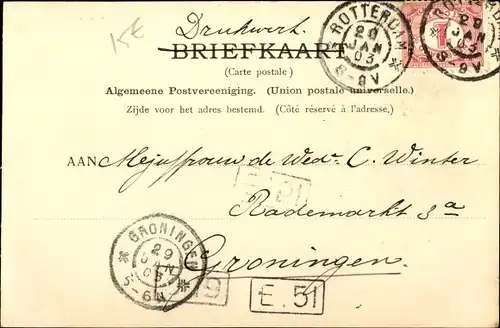 15€
Drukwerk.
BRIEFKAART
(Carte postale)
Algemeene Postvereeniging. (Union postale universelle.)
Zijde voor het adres bestemd. (Côté réservé à l'adresse.)
AAN Mejuffrouw de Wede. C. Winter
Rademarkt 3a
Groningen.
ROTTERDAM
29
JAN
03
8-9V
ROTTERDAM
29
JAN
03
8-9V
1
E.51
GRONINGEN
29
JAN
03
5-6N
19
E.51